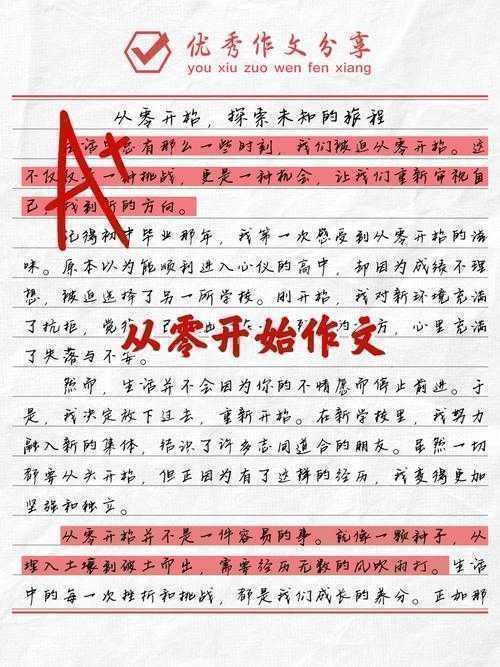 优秀作文分享
you xiu zuo wen fen xiang
从零开始，探索未知的旅程
A+
生活中总有那么一些时刻，我们被迫从零开始。这
不仅仅是一种挑战，更是一种机会，让我们重新审视自
己，找到新的方向。
记得初中毕业那年，我第一次感受到从零开始的滋
味。原本以为能顺利进入心仪的高中，却因为成绩不理
想，被迫选择了另一所学校。刚开始，我对新环境充满
了抗拒，觉 方，心里充满
从零开始作文
了失落与不安。
然而，生活并不会因为你的不情愿而停止前进。于
是，我决定放下过去，重新开始。在新学校里，我努力
融入新的集体，结识了许多志同道合的朋友。虽然一切
都要从头开始，但正因为有了这样的经历，我变得更加
坚强和独立。
从零开始并不是一件容易的事。就像一颗种子，从
埋入土壤到破土而出，需要经历无数的风吹雨打。生活
中的每一次挫折和挑战，都是我们成长的养分。正如那